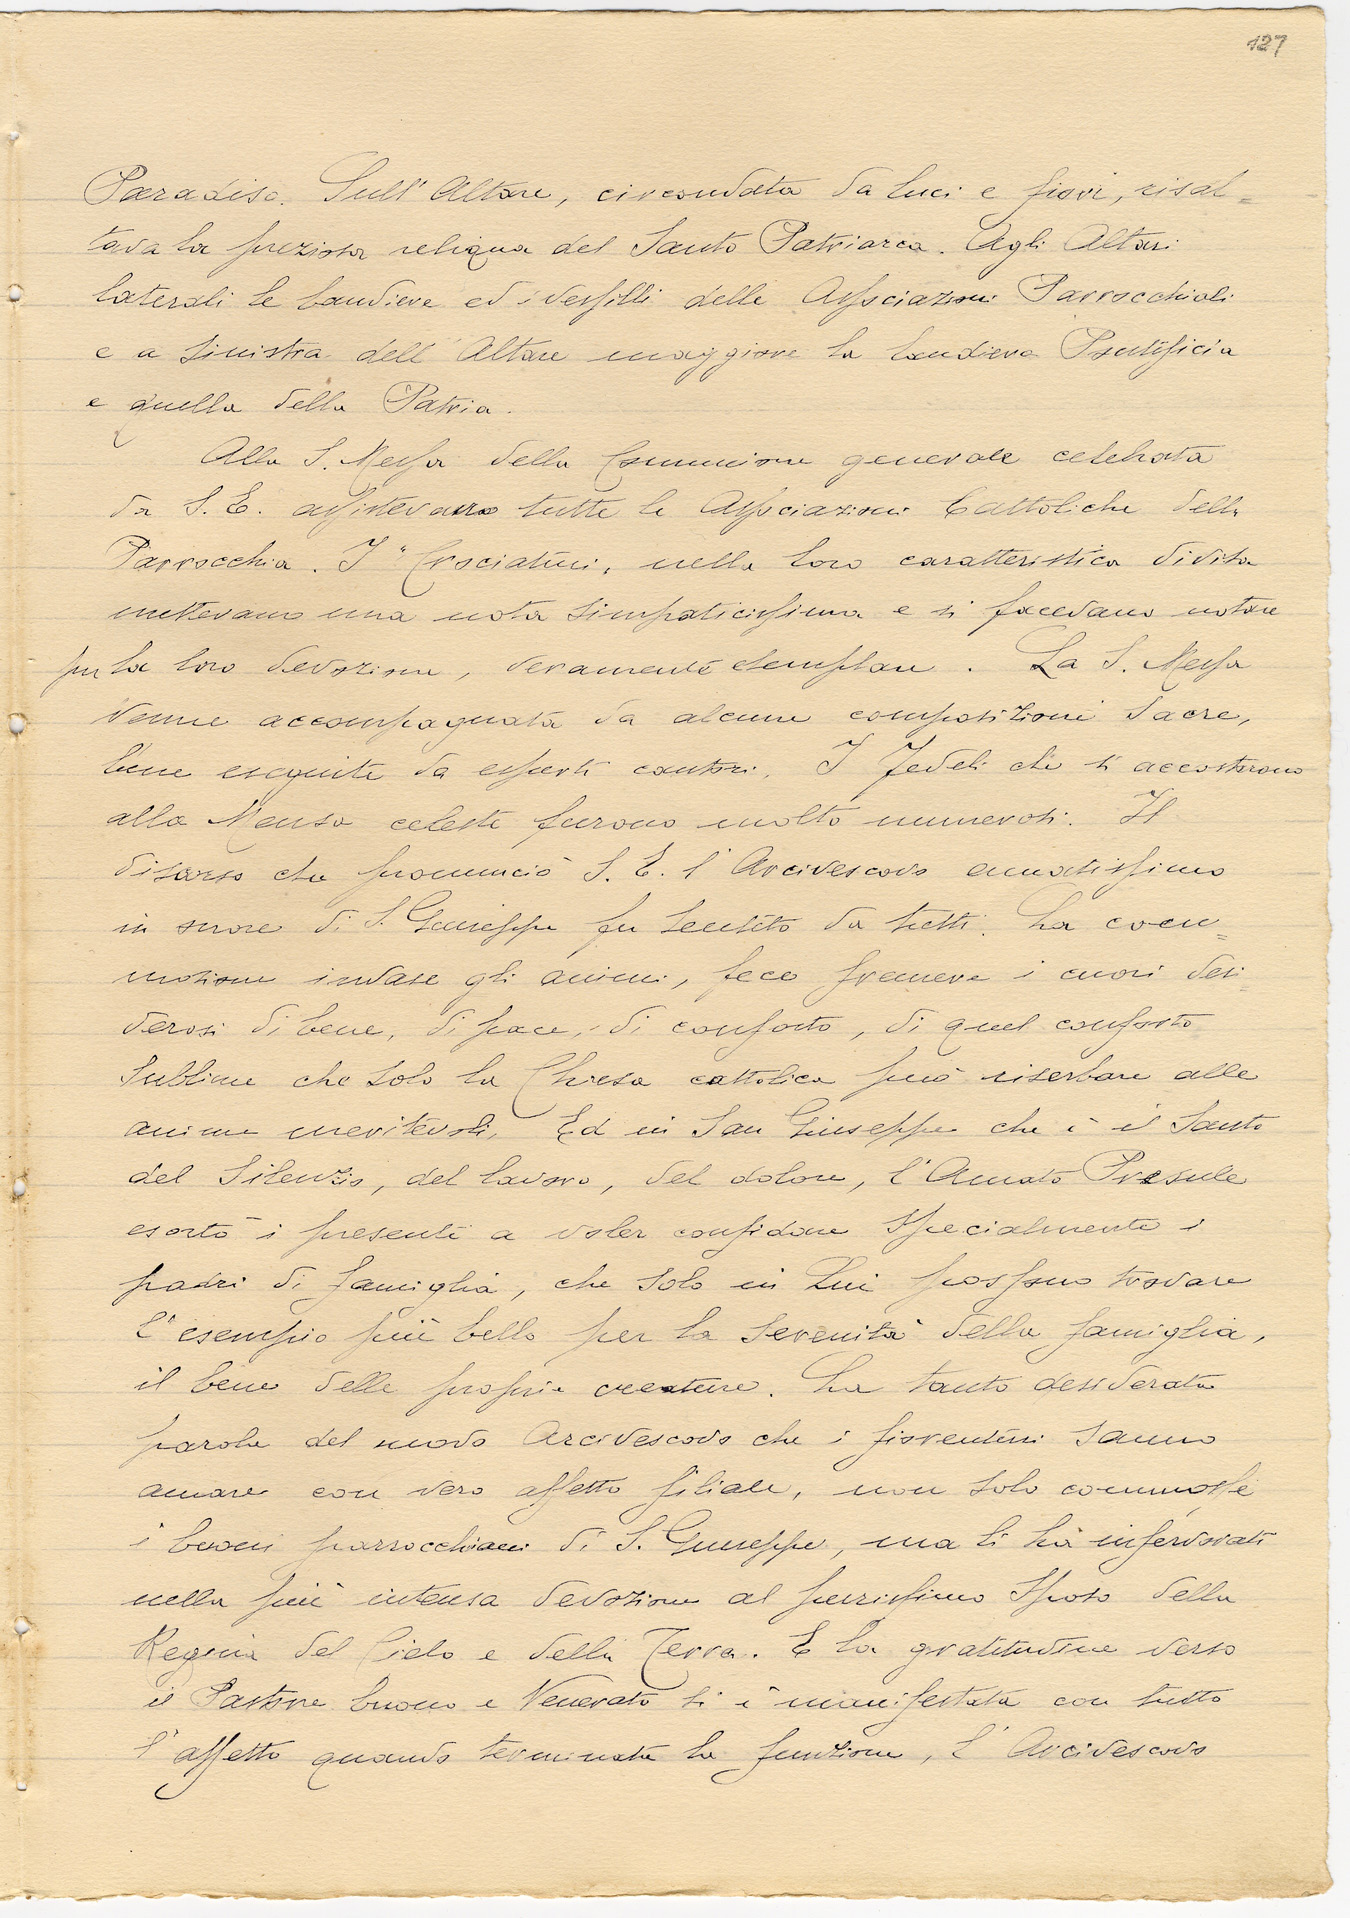 127
Paradiso. Sull'Altare, circondata da luci e fiori, risal=
tava la preziosa reliqua del Santo Patriarca. Agli Altari
laterali le bandiere ed i vessilli delle Associazioni Parrocchiali
e a sinistra dell'Altare maggiore la bandiera Pontificia
e quella della Patria.
Alla S. Messa della Comunione generale celebrata
da S. E. assistevano tutte le Associazioni Cattoliche della
Parrocchia. I "Crociatini, nella loro caratteristica divisa
mettevano una nota simpaticissima e si facevano notare
per la loro devozione, veramente esemplare. La S. Messa
venne accompagnata da alcune composizioni sacre,
bene eseguite da esperti cantori. I Fedeli che si accostarono
alla Mensa celeste furono molto numerosi. Il
discorso che pronunciò S. E. l'Arcivescovo amatissimo
in onore di S. Giuseppe fu sentito da tutti. La com=
mozione invase gli animi, fece fremere i cuori desi
derosi di bene, di pace, di conforto, di quel conforto
sublime che solo la Chiesa cattolica può riserbare alle
anime meritevoli. Ed in San Giuseppe che è il Santo
del Silenzio, del lavoro, del dolore, l'Amato Presule
esortò i presenti a voler confidare specialmente i
padri di famiglia, che solo in Lui possono trovare
l'esempio più bello per la serenità della famiglia,
il bene delle proprie creature. La tanto desiderata
parola del nuovo Arcivescovo che i fiorentini sanno
amare con vero affetto filiale, non solo commosse
i buoni parrocchiani di S. Giuseppe, ma li ha infervorati
nella più intensa devozione al purissimo Sposo della
Regina del Cielo e della Terra. E la gratitudine verso
il Pastore buono e Venerato si è manifestata con tutto
l'affetto quando terminata la funzione, l'Arcivescovo